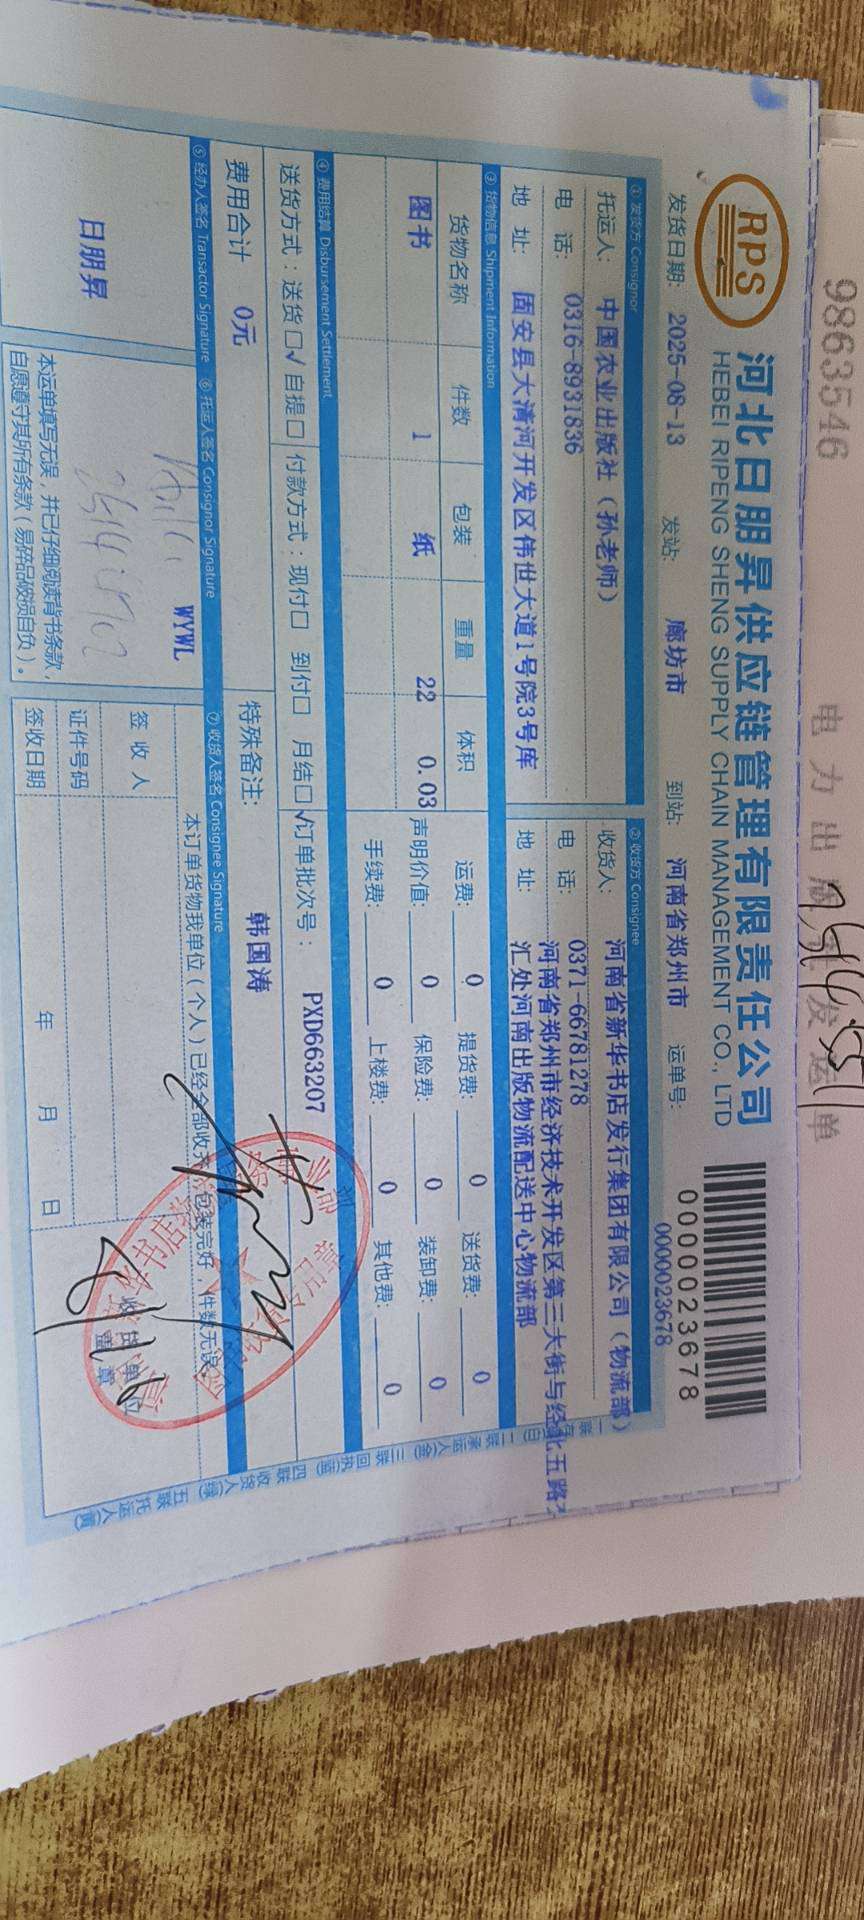 9863546
电力出版社发运单
RPS
河北日朋昇供应链管理有限责任公司
HEBEI RIPENG SHENG SUPPLY CHAIN MANAGEMENT CO., LTD
0000023678
发货日期: 2025-08-13 发站: 廊坊市 到站: 河南省郑州市 运单号: 0000023678
① 发货方 Consignor
托运人: 中国农业出版社（孙老师）
电 话: 0316-8931836
地 址: 固安县大清河开发区伟世大道1号院3号库
② 收货方 Consignee
收货人: 河南省新华书店发行集团有限公司（物流部）
电 话: 0371-66781278
地 址: 河南省郑州市经济技术开发区第三大街与经北五路
汇处河南出版物流配送中心物流部
③ 货物信息 Shipment Information
货物名称 件数 包装 重量 体积
图书 1 纸 22 0.03
运费: 0 提货费: 0 送货费: 0
声明价值: 0 保险费: 0 装卸费: 0
手续费: 0 上楼费: 0 其他费: 0
④ 费用结算 Disbursement Settlement
送货方式: 送货□√ 自提□ 付款方式: 现付□ 到付□ 月结□√ 订单批次号: PXD663207
费用合计 0元 特殊备注: 韩国涛
⑤ 经办人签名 Transactor Signature ⑥ 托运人签名 Consignor Signature ⑦ 收货人签名 Consignee Signature
日朋昇
WYWL
本运单填写无误，并已仔细阅读背书条款，
自愿遵守其所有条款（易碎品破损自负）。
本订单货物我单位（个人）已经全部收齐，包装完好，件数无误。
签 收 人
证件号码
签收日期 年 月 日
收货单位
盖 章
二联承运人(金) 三联回执(蓝) 四联收货人(绿) 五联托运人(黄)